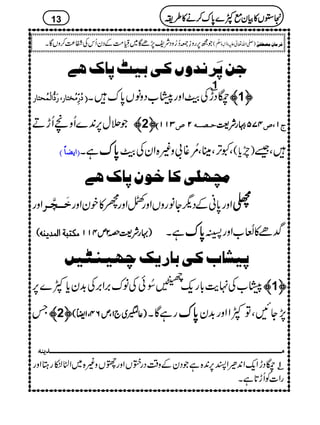 13
نجاستوں کا بیان مع کپڑے پاک کرنے کا طریقہ
فرمانِ مصطفٰی (صلی اللہ تعالیٰ علیہ والہ وسلم) جو مجھ پر روزِ جمعہ دُرُود شریف پڑھے گا میں قیامت کے دن اُس کی شفاعت کروں گا۔
جن پَرَندوں کی بیٹ پاک ہے
﴿1﴾ چمگادڑ1 کی بیٹ اور پیشاب دونوں پاک ہیں۔ (دُرِّمُختار، رَدُّالْمُحتار
ج۱، ص۵۷۴، بہارِ شریعت حصہ ۲ ص۱۱۳) ﴿2﴾ جو حلال پرندے اُونچے اُڑتے
ہیں، جیسے (چڑیا)، کبوتر، مَینا، مُرغابی وغیرہ ان کی بیٹ پاک ہے۔ (ایضاً)
مچھلی کا خون پاک ہے
مچھلی اور پانی کے دیگر جانوروں اور کھٹمل اور مچھر کا خون اور خَچَّر اور
گدھے کا لُعاب اور پسینہ پاک ہے۔ (بہارِ شریعت حصہ۲ص ۱۱۴ مکتبۃ المدینہ)
پیشاب کی باریک چھینٹیں
﴿1﴾ پیشاب کی نہایت باریک چھینٹیں سُوئی کی نوک برابر کی بدن یا کپڑے پر
پڑ جائیں، تو کپڑا اور بدن پاک رہے گا۔ (عالمگیری ج۱ص۴۶، ایضاً) ﴿2﴾ جس
مدینہ
1 چمگادڑ ایک اندھیرا پسند پرندہ ہے جو دن کے وقت درختوں اور چھتوں وغیرہ میں الٹا لٹکا رہتا اور
رات کو اُڑتا ہے۔